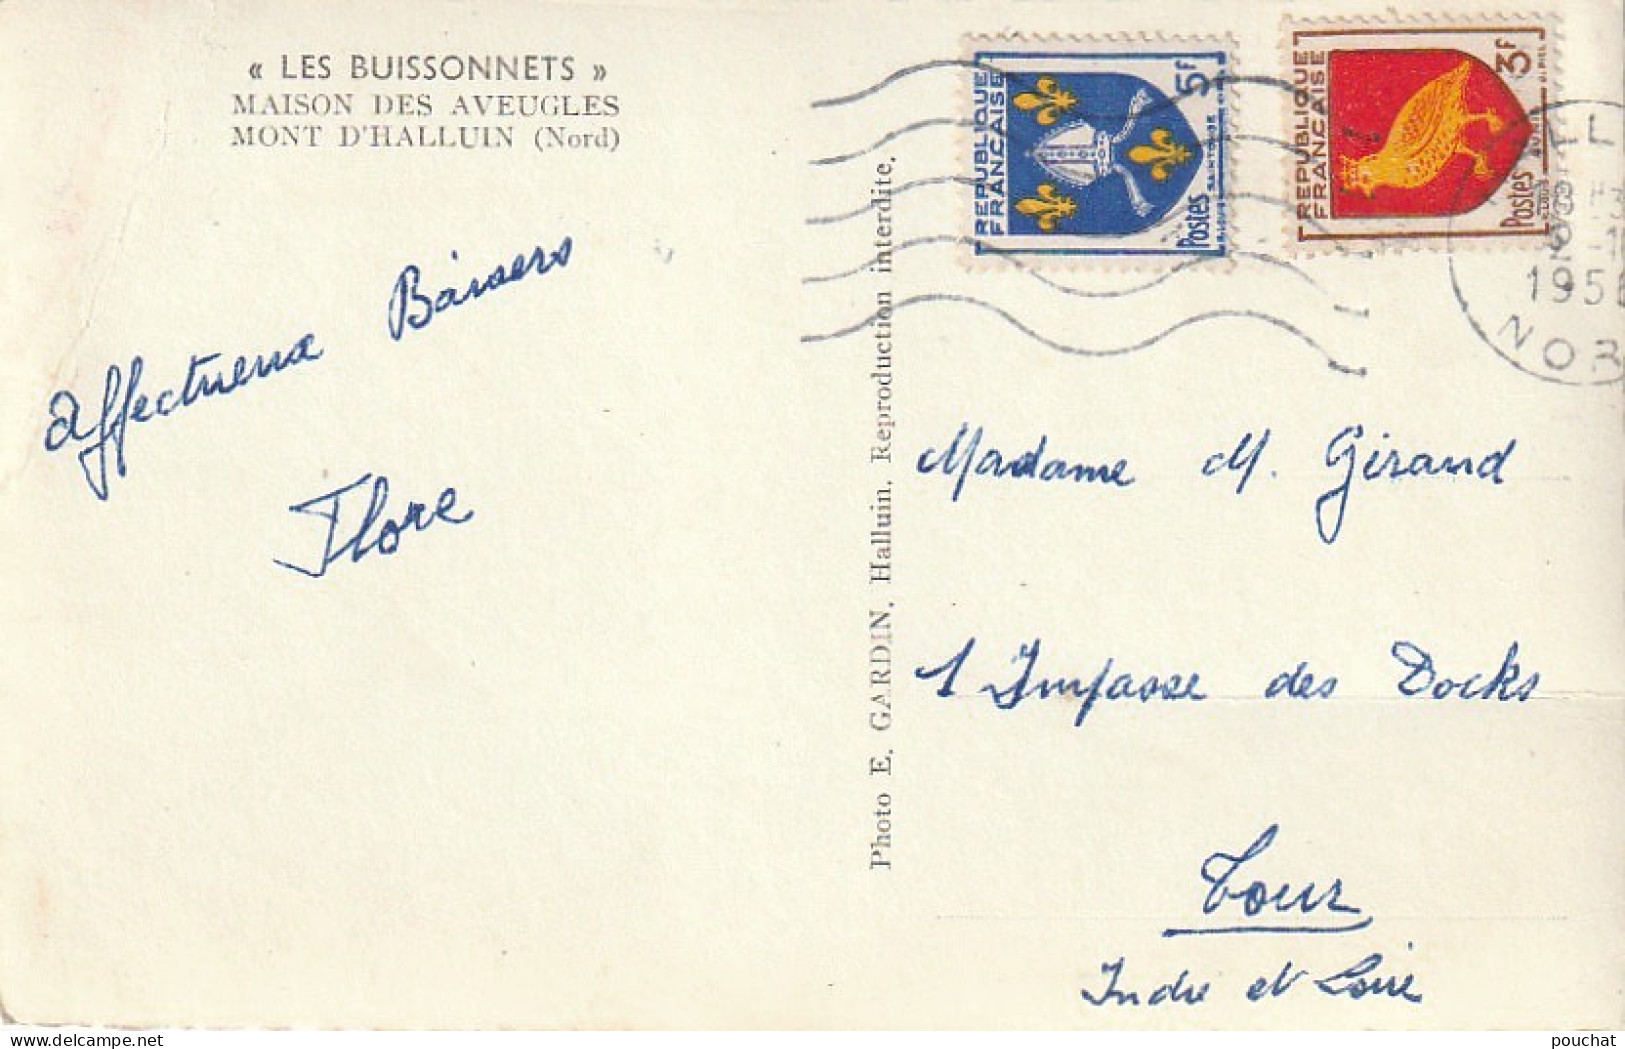 « LES BUISSONNETS »
MAISON DES AVEUGLES
MONT D'HALLUIN (Nord)
affectueux Baisers
Flore
Photo E. GARDIN, Halluin. Reproduction interdite.
REPUBLIQUE
FRANCAISE
5F
Postes
SAINTONGE
REPUBLIQUE
FRANCAISE
3F
Postes
AUNIS
1956
NOR
Madame M. Giraud
1 Impasse des Docks
Tour
Indre et Loire
pouchat